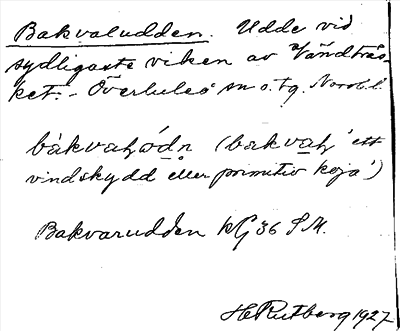 Bakvaludden. Udde vid
sydligaste viken av Vändträs-
ket. - Överluleå sn o. tg. Norrb. l.
bàkvaḥódn (bakvaḥ 'ett
vindskydd eller primitiv koja')
Bakvarudden kG 36 S.M.
H Rutberg 1927